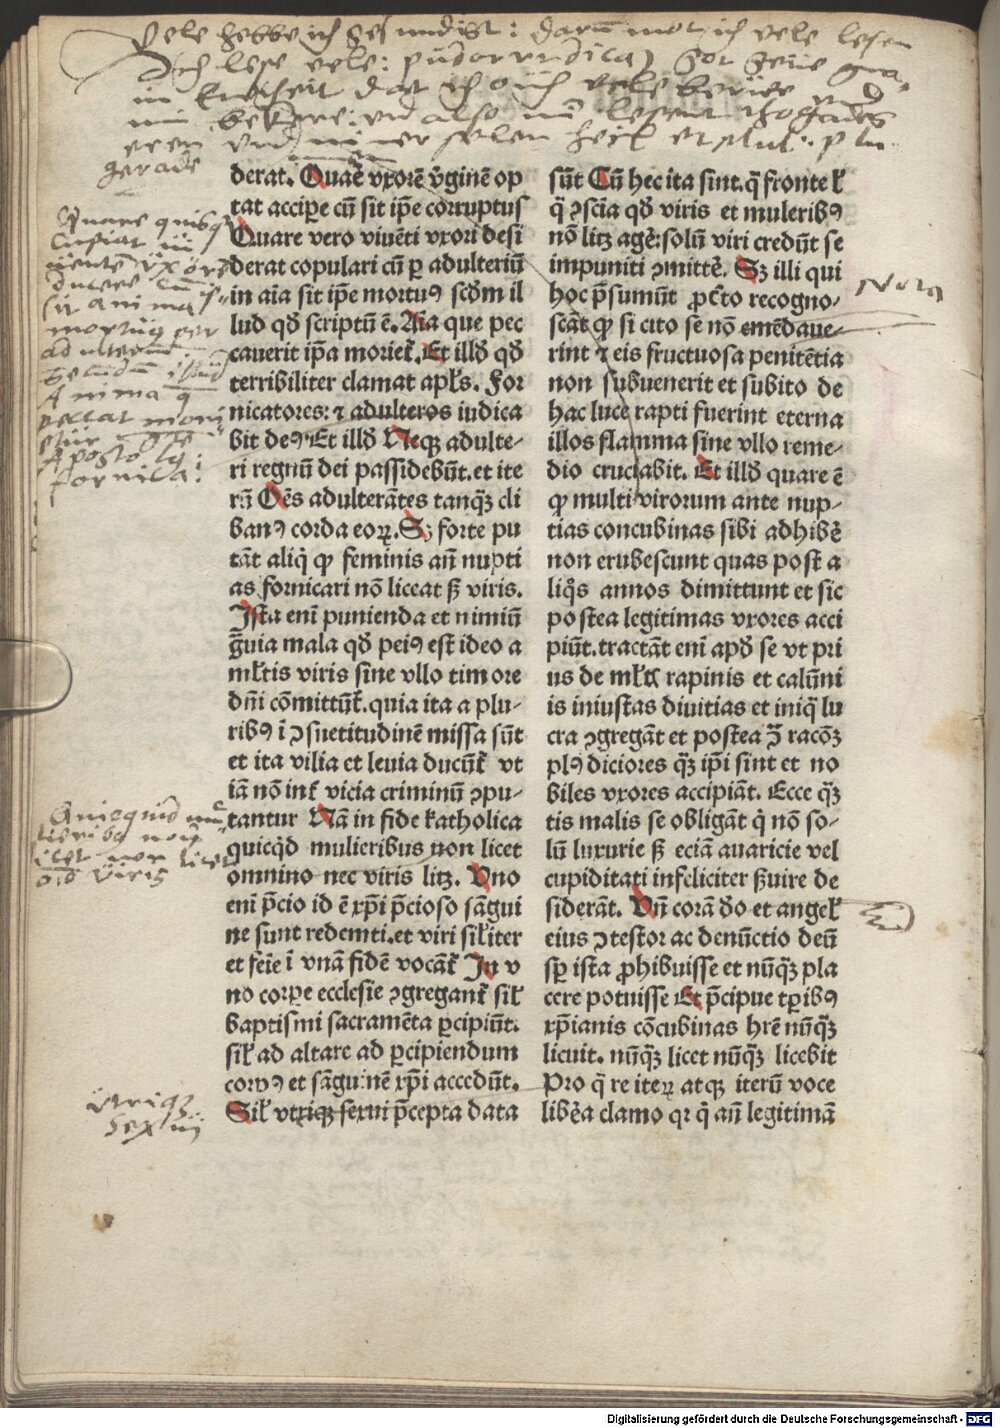 vele hebbe ich gesundist: darum mot ich vele lesen
Ich lese vele: got geue
vnd also lesent tho gades
eeren vnd miner selen heil
gerade
derat. Quare vxorē v̄ginē op
tat accipe cū sit ip̄e corruptus
Quare vero viuēti vxori desi
derat copulari cū ꝑ adulteriū
in aīa sit ip̄e mortuꝯ scd̄m il
lud qd̄ scriptū ē. Aīa que pec
cauerit ip̄a morieť. Et illd̄ qd̄
terribiliter clamat apłs. For
nicatores: ⁊ adulteros iudica
bit deꝯ Et illd̄ Necꝫ adulte-
ri regnū dei passidebūt. et ite
rū Oēs adulterātes tanqꝫ cli
banꝯ corda eoꝝ. Sꝫ forte pu
tāt aliq̇ ꝙ feminis an̄ nupti
as fornicari nō liceat sꝫ viris.
Ista eni punienda et nimiū
g̅uia mala qd̄ peiꝯ est ideo a
młtis viris sine vllo timore
dn̄i cōmittūť. quia ita a plu-
ribꝯ ī ꝯsuetitudinē missa sūt
et ita vilia et leuia ducūť vt
iā nō inť vicia criminū ꝯpu-
tantur Nā in fide katholica
quicq̇d mulieribus non licet
omnino nec viris litꝫ. Vno
eni p̄cio id ē xp̄i p̄cioso sāgui
ne sunt redemti. et viri siłiter
et feīe ī vnā fidē vocāť In v
no corpe ecclesie ꝯgreganť sił
baptismi sacramēta ꝑcipiūt.
sił ad altare ad ꝑcipiendum
corpꝯ et sāguinē xp̄i accedūt.
Sił vtriqꝫ sexui p̄cepta data
sūt Cū hec ita sint. q̄ fronte ł
q̄ ꝯscīa qd̄ viris et muleribꝯ
nō litꝫ agē: solū viri credūt se
impuniti ꝯmittē. Sꝫ illi qui
hoc p̄sumūt ꝓcťo recogno-
scāt ꝙ si cito se nō emēdaue-
rint ⁊ eis fructuosa penitētia
non subuenerit et subito de
hac luce rapti fuerint eterna
illos flamma sine vllo reme-
dio cruciabit. Et illd̄ quare ē
ꝙ multi virorum ante nup-
tias concubinas sibi adhibē
non erubescunt quas post a
liq̇s annos dimittunt et sic
postea legitimas vxores acci
piūt. tractāt eni apd̄ se vt pri
us de młtꝭ rapinis et calūni
is iniustas diuitias et iniq̄ lu
cra ꝯgregāt et postea ꝯ̄ racōꝫ
plꝯ diciores qꝫ ip̄i sint et no
biles vxores accipiāt. Ecce qꝫ
tis malis se obligāt q̇ nō so-
lū luxurie sꝫ eciā auaricie vel
cupiditati infeliciter ẜuire de
siderāt. Vn̄ corā do et angeł
eius ꝯtestor ac denūctio deū
sꝑ ista ꝓhibuisse et nūqꝫ pla
cere potuisse Et p̄cipue tꝑibꝯ
xp̄ianis cōcubinas hr̄e nūqꝫ
licuit. nūqꝫ licet nūqꝫ licebit
Pro q̄ re iteꝝ atqꝫ iterū voce
libēa clamo qꝛ q̇ an̄ legitimā
Quare quisqꝫ
cupiat
uiuentē vxorē
ducere cum
sit anima
mortuꝯ per
adulterium
Secundum illud
Anima q̄
peccat mori
etur
Apostolꝯ:
fornica:
Nota
Quicquid mu
lieribꝯ non
licet nec licet
viris
vtriqꝫ
sexui
Digitalisierung gefördert durch die Deutsche Forschungsgemeinschaft - DFG